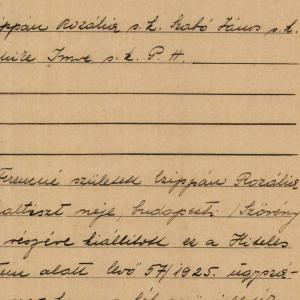 ippán Rozália s.k. Szabó János s.k.
Imre s.k. P. H.
Ferencné született Czippán Rozália
altiszt neje, budapesti /Szövény
részére kiállított ez a Hiteles
alatt levő 57/1925. ügyszá-